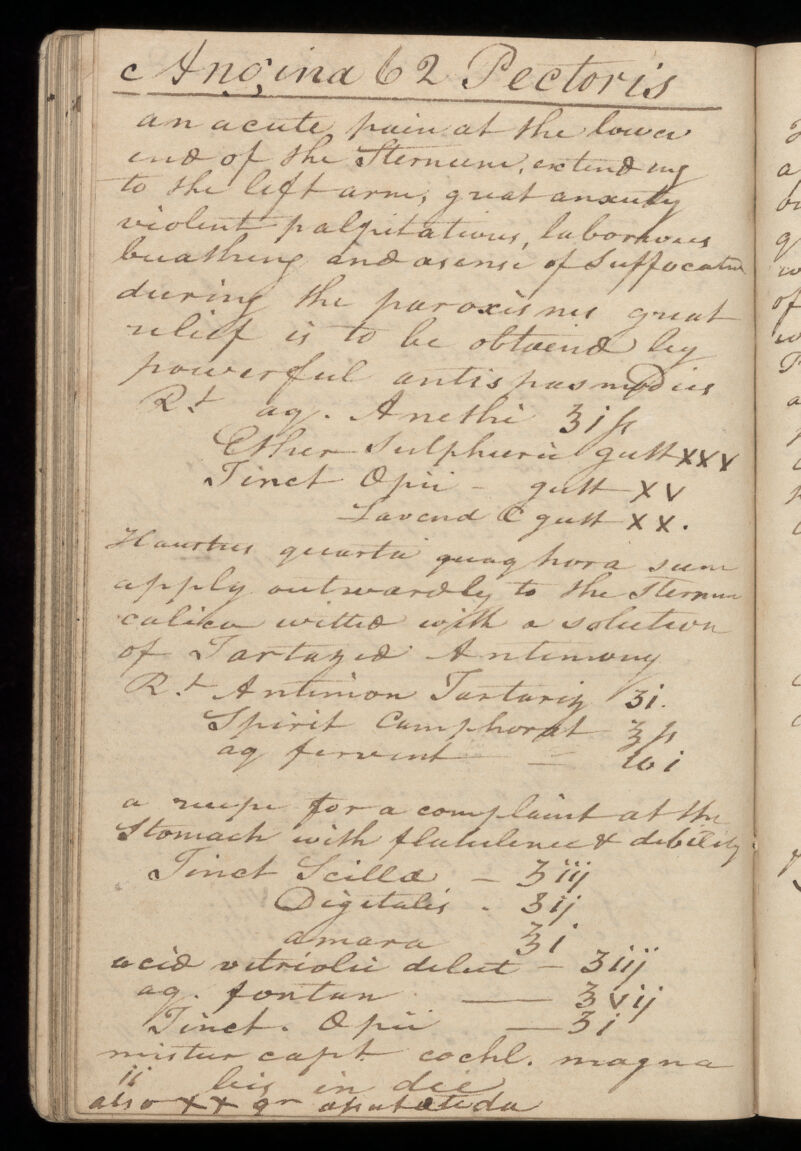 Angina 62 Pectoris
an acute pain at the lower
end of the Sternum, extending
to the left arm, great anxiety
violent palpitations, laborious
breathing and a sense of Suffocation
during the paroxisms great
relief is to be obtaiend by
powerful antispasmodics
Rt aq. Anethi ʒi ſs
Ether Sulphuric gutt xxv
Tinct Opii - gutt xv
Lavend C gutt xx.
Haustus quarta quaq hora sum
apply outwardly to the Sternum
calico wetted with a solution
of Tartazed Antimony
Rt Antimon Tartariz ʒi.
Spirit Camphorat ʒſs
aq fervent — ℔i
a recipe for a complaint at the
Stomach with flatulence & debility
Tinct Scilla - ʒiij
Digitalis - ʒij
amara ʒi
acid vitriolii dilut - ʒiij
aq. fontan — ʒvij
Tinct. Opii — ʒi
mistur capt cochl. magna
ii bis in die
also xx gr asafatida